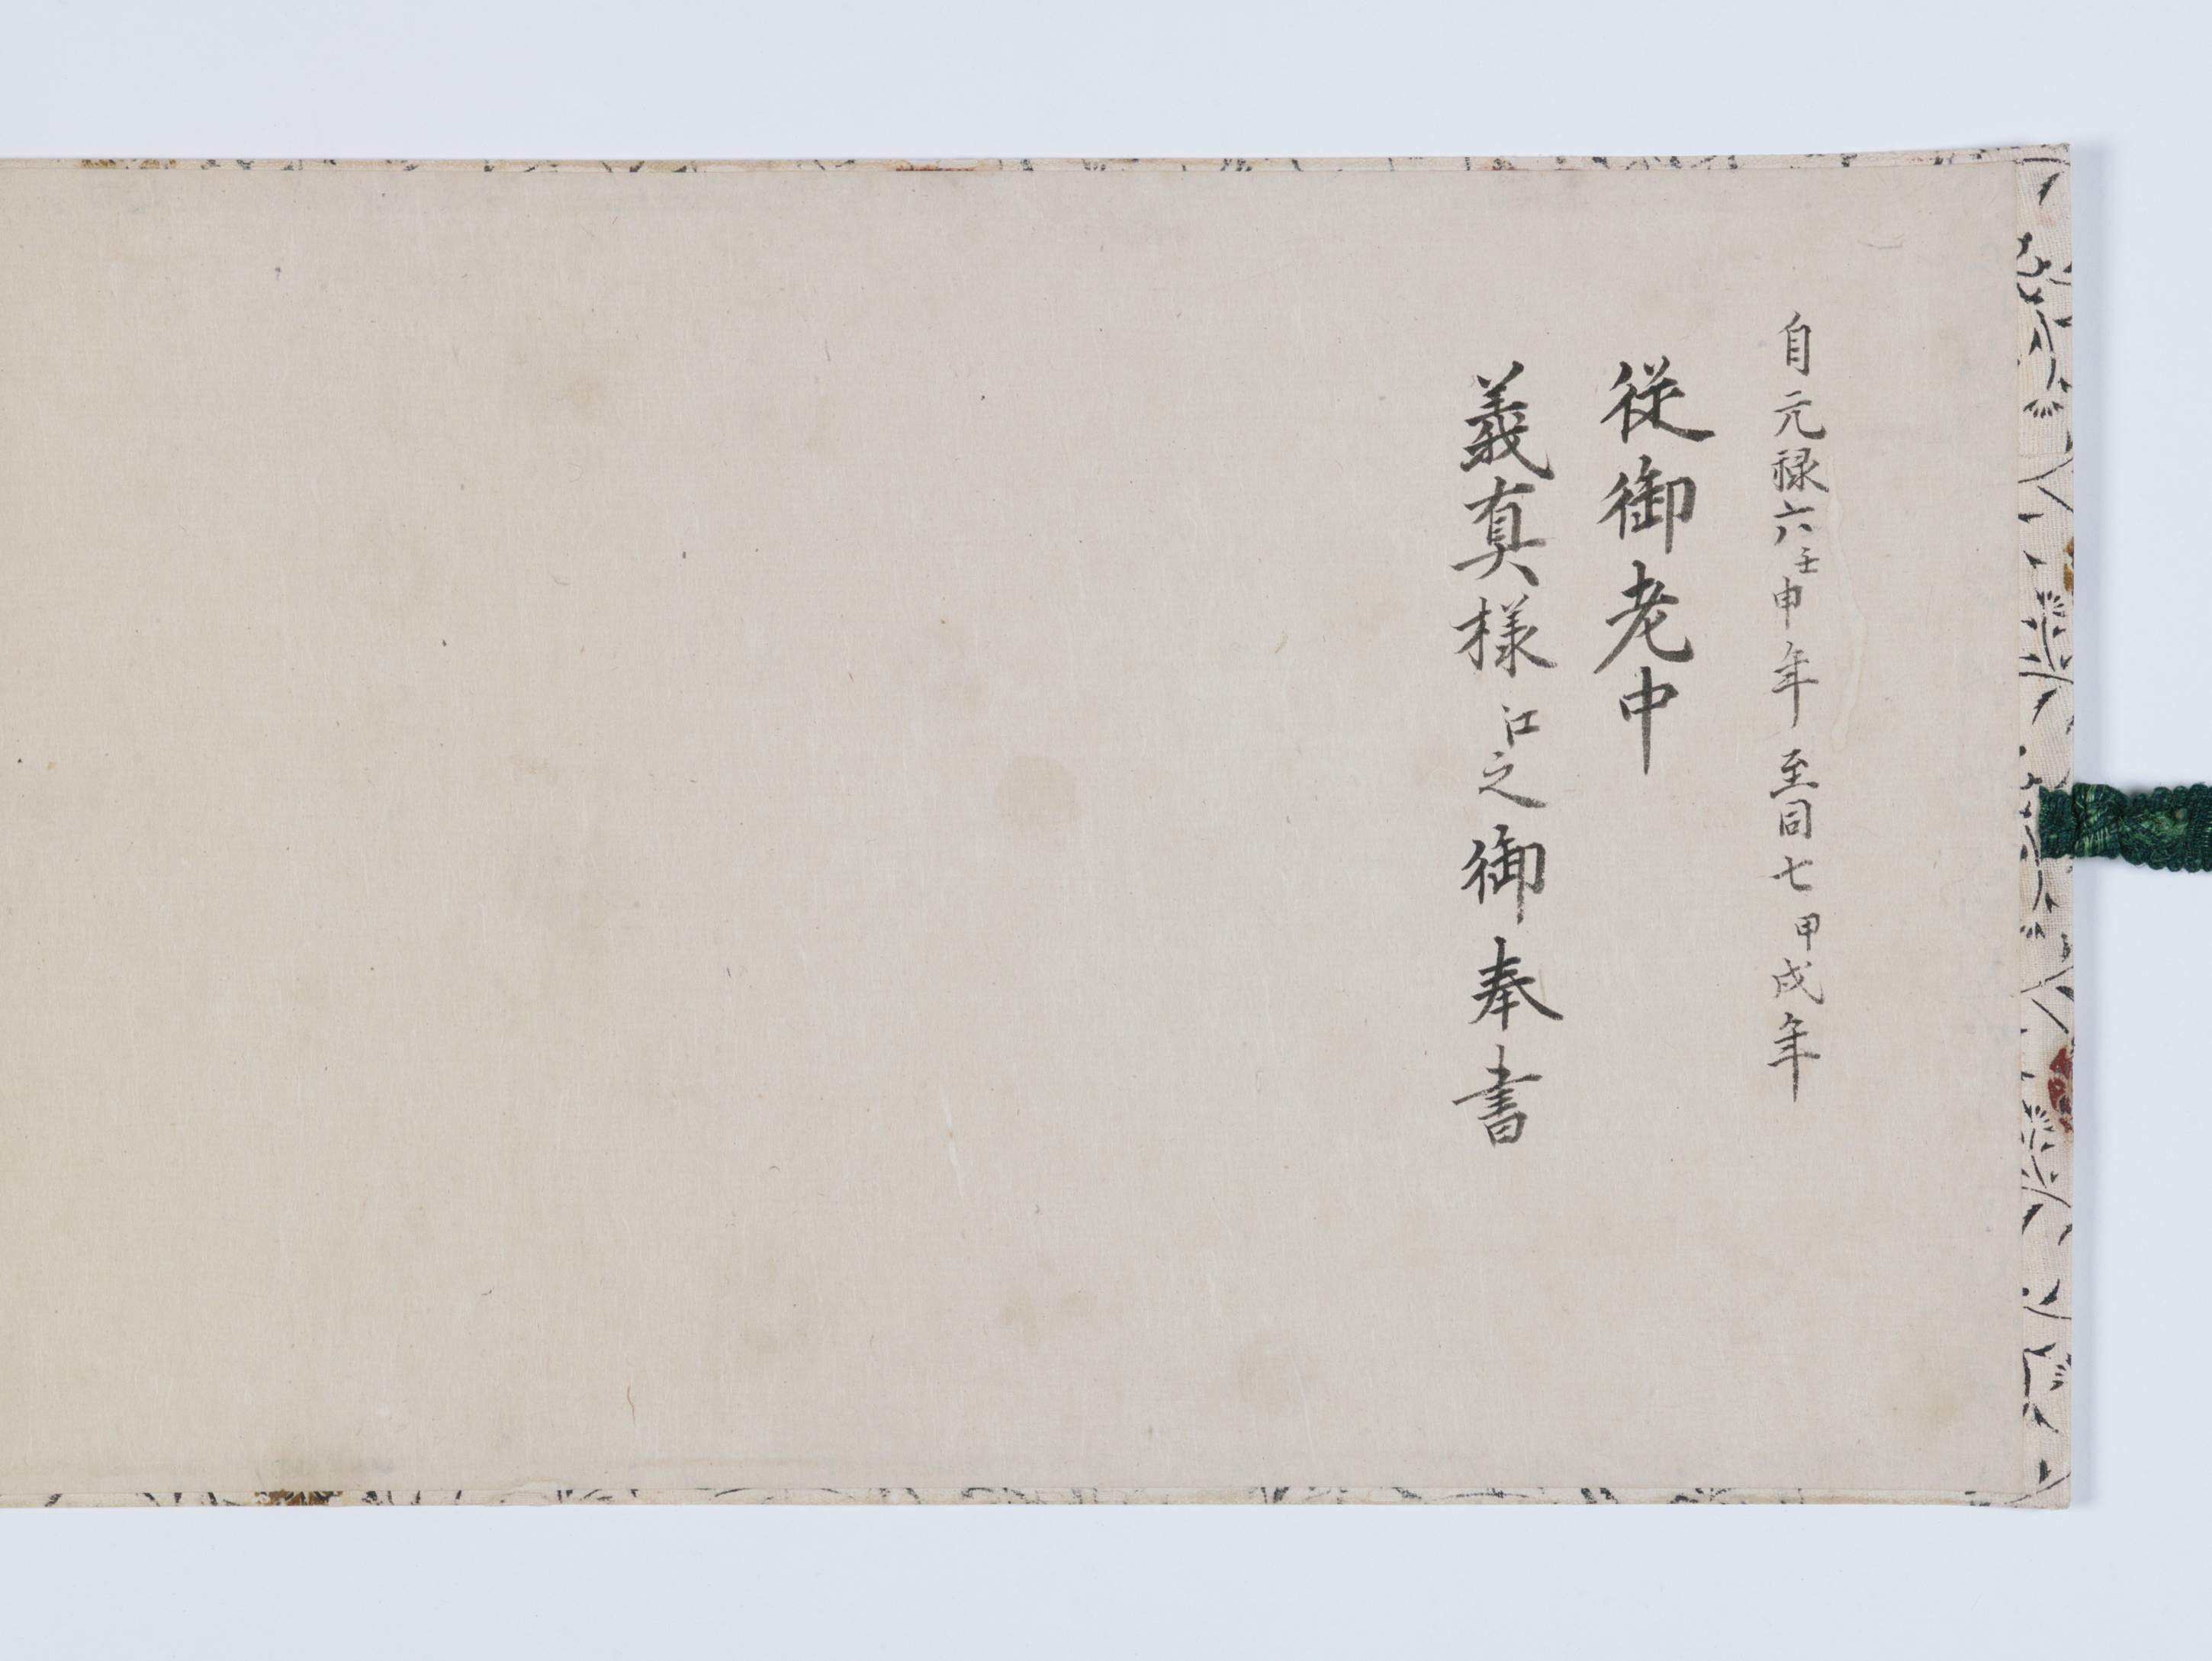 自元禄六壬申年至同七甲戌年
従御老中
義真様江之御奉書